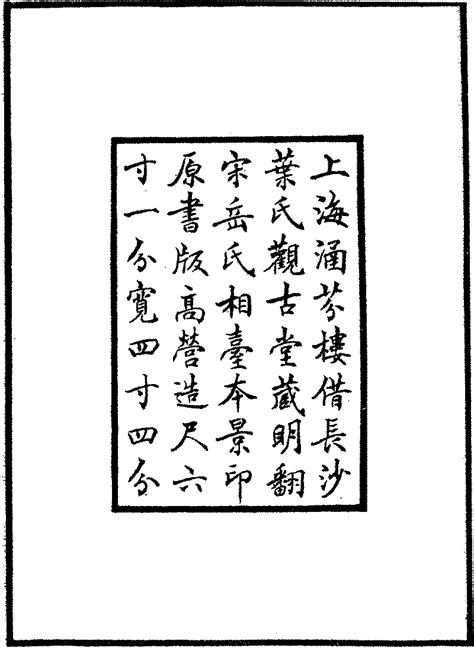 上海涵芬樓借長沙
葉氏觀古堂藏明翻
宋岳氏相臺本景印
原書版高營造尺六
寸一分寬四寸四分